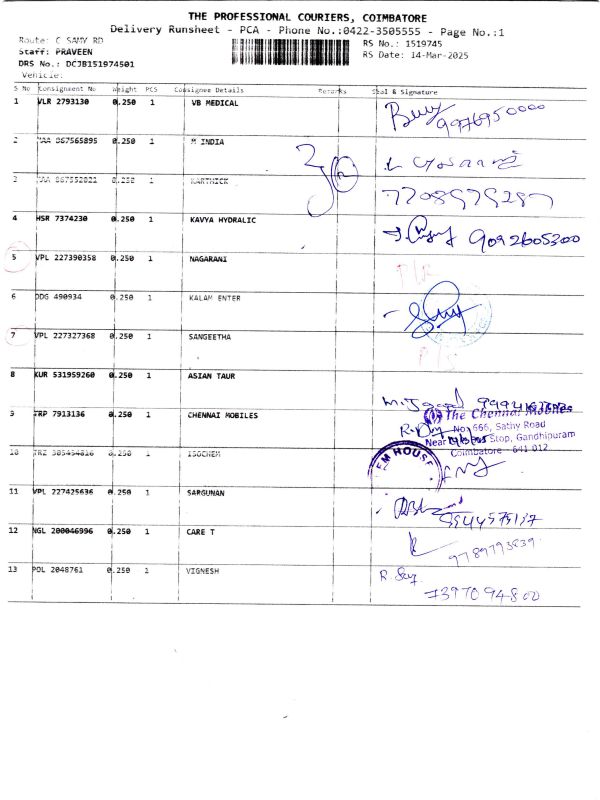 THE PROFESSIONAL COURIERS, COIMBATORE
Delivery Runsheet - PCA - Phone No.:0422-3505555 - Page No.:1
Route: C SAMY RD
RS No.: 1519745
Staff: PRAVEEN
RS Date: 14-Mar-2025
DRS No.: DCJB151974501
Vehicle:
S No Consignment No Weight PCS Consignee Details Remarks Seal & Signature
1 VLR 2793130 0.250 1 VB MEDICAL
9976950000
2 0.250 1 M INDIA
3 0.250 1 KARTHICK
7708979287
4 HSR 7374230 0.250 1 KAVYA HYDRALIC
9092605300
5 VPL 227390358 0.250 1 NAGARANI
6 DDG 490934 0.250 1 KALAM ENTER
7 VPL 227327368 0.250 1 SANGEETHA
8 KUR 531959260 0.250 1 ASIAN TAUR
9 TRP 7913136 0.250 1 CHENNAI MOBILES
The Chennai Mobiles
No: 666, Sathy Road
Near Stop, Gandhipuram
Coimbatore - 641 012
10 0.250 1 ISOCHEM
EM HOUSE
11 VPL 227425636 0.250 1 SARGUNAN
9944575137
12 NGL 200046996 0.250 1 CARE T
9789793839
13 POL 2048761 0.250 1 VIGNESH
7397094800